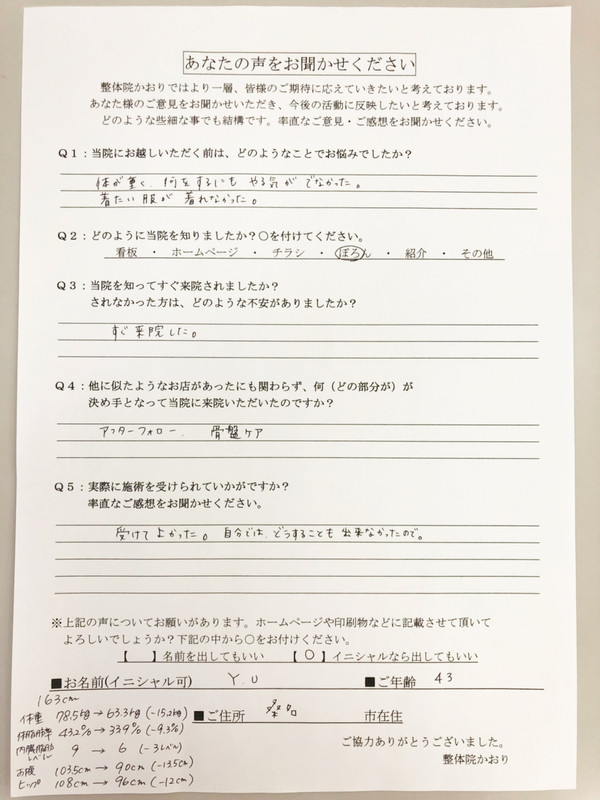 あなたの声をお聞かせください
整体院かおりではより一層、皆様のご期待に応えていきたいと考えております。
あなた様のご意見をお聞かせいただき、今後の活動に反映したいと考えております。
どのような些細な事でも結構です。率直なご意見・ご感想をお聞かせください。
Q1：当院にお越しいただく前は、どのようなことでお悩みでしたか？
体が重く、何をするにもやる気がでなかった。
着たい服が着れなかった。
Q2：どのように当院を知りましたか？○を付けてください。
看板 ・ ホームページ ・ チラシ ・ ぽろん ・ 紹介 ・ その他
Q3：当院を知ってすぐ来院されましたか？
されなかった方は、どのような不安がありましたか？
すぐ来院した。
Q4：他に似たようなお店があったにも関わらず、何（どの部分が）が
決め手となって当院に来院いただいたのですか？
アフターフォロー、 骨盤ケア
Q5：実際に施術を受けられていかがですか？
率直なご感想をお聞かせください。
受けてよかった。自分では、どうすることも出来なかったので。
※上記の声についてお願いがあります。ホームページや印刷物などに記載させて頂いて
よろしいでしょうか？下記の中から○をお付けください。
【　】名前を出してもいい 【○】イニシャルなら出してもいい
■お名前(イニシャル可) Y.U ■ご年齢 43
163cm
■ご住所 市在住
体重 78.5kg→63.3kg(-15.2kg)
体脂肪率 43.2%→33.9%(-9.3%)
内臓脂肪レベル 9→6(-3レベル)
お腹 103.5cm→90cm(-13.5cm)
ヒップ 108cm→96cm(-12cm)
ご協力ありがとうございました。
整体院かおり